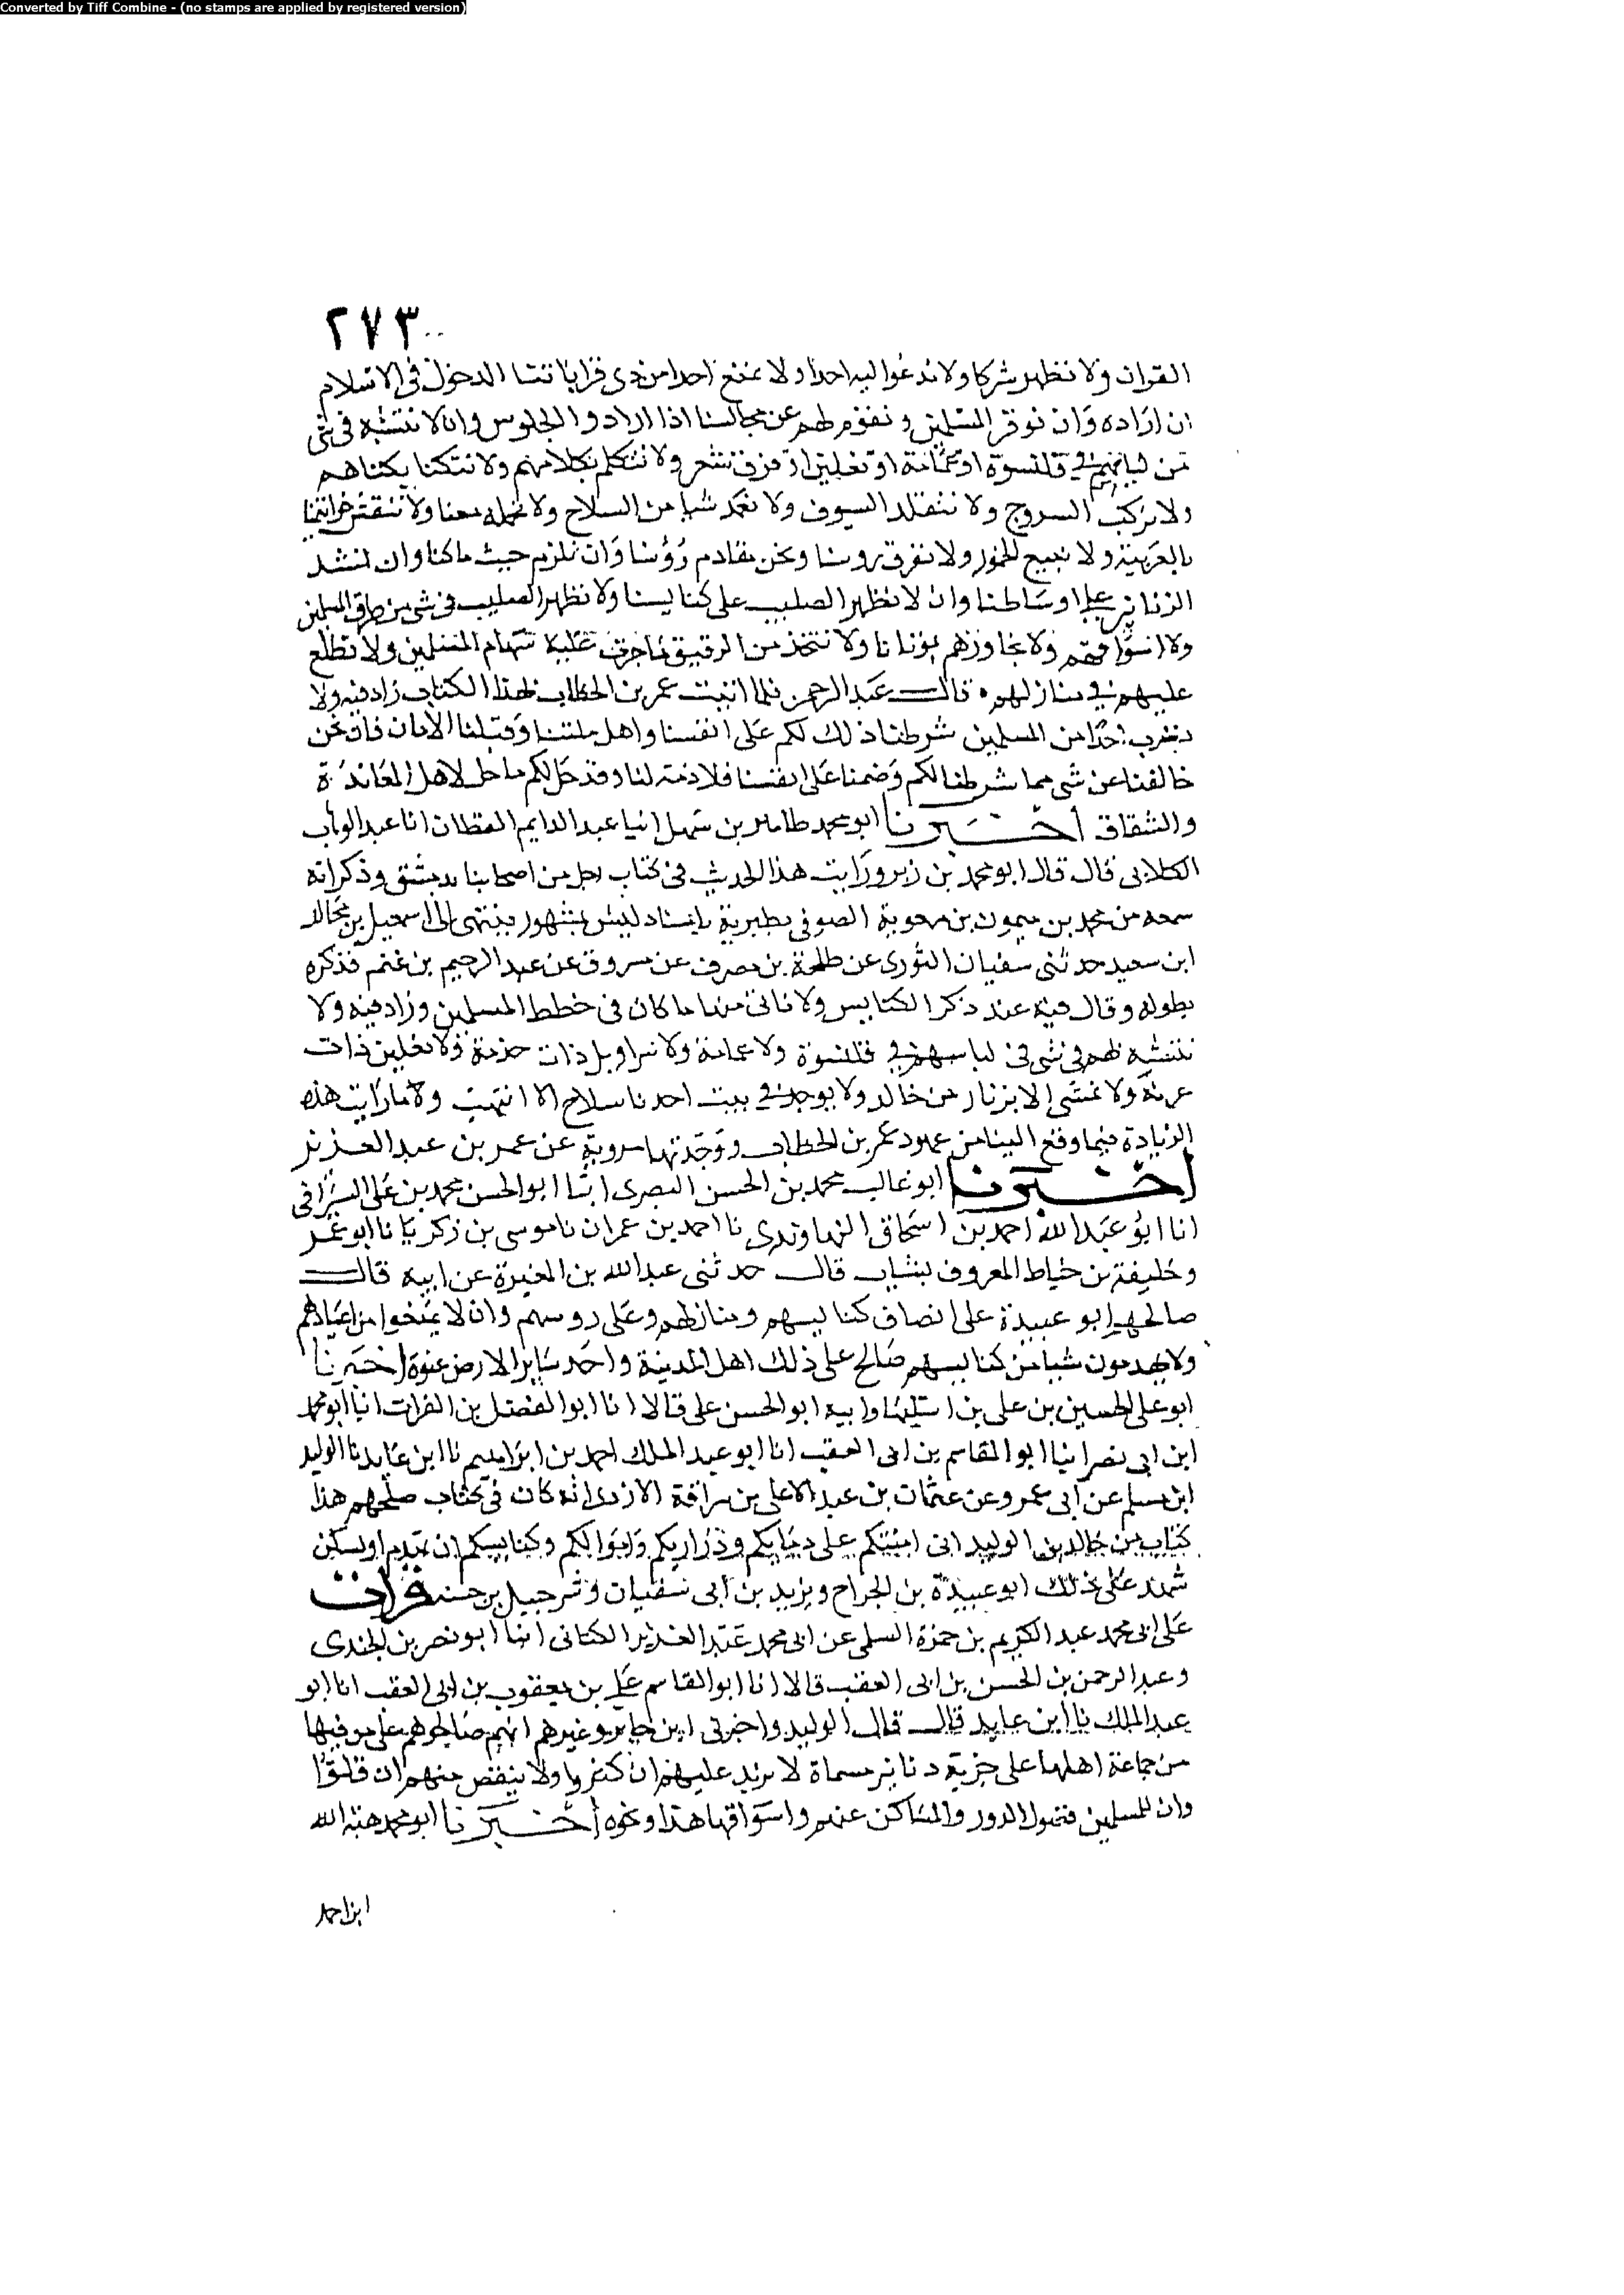 Converted by Tiff Combine - (no stamps are applied by registered version)
٢٧٣
القران ولا نظهر شركا ولا ندعوا اليه احدا ولا نمنع احدا من ذي قراباتنا الدخول في الاسلام
ان اراده وان نوقر المسلمين ونقوم لهم عن مجالسنا اذا ارادوا الجلوس وان لا نتشبه في شي
من لباسهم في قلنسوة او عمامة او نعلين او فرق شعر ولا نتكلم بكلامهم ولا نتكنا بكناهم
ولا نركب السروج ولا نتقلد السيوف ولا نتخذ شيا من السلاح ولا نحمله معنا ولا ننقش خواتيمنا
بالعربية ولا نبيع الخمور ولا نفرق روسنا ونجز مقادم رؤسنا وان نلزم حيث ما كنا وان نشد
الزنانير علي اوساطنا وان لا نظهر الصليب على كنايسنا ولا نظهر الصليب في شي من طرق المسلمين
ولا اسواقهم ولا نجاورهم بموتانا ولا نتخذ من الرقيق ما جرت عليه سهام المسلمين ولا نطلع
عليهم في منازلهم قال عبد الرحمن فلما اتيت عمر بن الخطاب بهذا الكتاب زاد فيه ولا
نضرب احدا من المسلمين شرطنا ذلك لكم على انفسنا واهل ملتنا وقبلنا الامان فان نحن
خالفنا عن شي مما شرطنا لكم وضمنا على انفسنا فلا ذمة لنا وقد حل لكم ما حل لاهل المعاندة
والشقاق اخبرنا ابو محمد طاهر بن سهل انبا عبد الدايم القطان انا عبد الوهاب
الكلابي قال قال ابو محمد بن زبر ورايت هذا الحديث في كتاب رجل من اصحابنا بدمشق وذكر انه
سمعه من محمد بن ميمون بن معوية الصوفي بطبرية باسناد ليس بمشهور ينتهي الى اسمعيل بن مجالد
ابن سعيد حدثني سفيان الثوري عن طلحة بن مصرف عن مسروق عن عبد الرحيم بن غنم فذكره
بطوله وقال فيه عند ذكر الكنايس ولا ناتي منها ما كان في خطط المسلمين وزاد فيه ولا
نتشبه لهم في شي في لباسهم في قلنسوة ولا عمامة ولا سراويل ذات خدمة ولا نعلين ذات
عذبة ولا نمشي الا بزنار من جلد ولا يوجد في بيت احدنا سلاح الا انتهب ولا ما رايت هذه
الزيادة فيما وقع الينا من عهود عمر بن الخطاب ووجدتها مروية عن عمر بن عبد العزيز
اخبرنا ابو غالب محمد بن الحسن البصري انبا ابو الحسن محمد بن علي السيرافي
انا ابو عبد الله احمد بن اسحاق النهاوندي نا احمد بن عمران نا موسى بن زكريا نا ابو عمر
وخليفة بن خياط المعروف بشباب قال حدثني عبد الله بن المغيرة عن ابيه قال
صالحهم ابو عبيدة على انصاف كنايسهم ومنازلهم وعلى روسهم وان لا يمنعوا من اعيادهم
ولا يهدمون شيا من كنايسهم صالح على ذلك اهل المدينة واخذ ساير الارض عنوة اخبرنا
ابو علي الحسين بن علي بن اشليها وابيه ابو الحسن علي قالا انا ابو الفضل بن الفرات انبا ابو محمد
ابن ابي نصر انبا ابو القاسم بن ابي العقب انا ابو عبد الملك احمد بن ابراهيم نا ابن عايد نا الوليد
ابن مسلم عن ابي عمرو عن عثمان بن عبد الاعلى بن سراقة الازدي انه كان في كتاب صلحهم هذا
كتاب من خالد بن الوليد اني امنتكم على دمايكم وذراريكم واموالكم وكنايسكم ان تهدم او تسكن
شهد على ذلك ابو عبيدة بن الجراح ويزيد بن ابي سفيان وشرحبيل بن حسنة قرات
على ابي محمد عبد الكريم بن حمزة السلمي عن ابي محمد عبد العزيز الكتاني انبا ابو نصر بن الجندي
وعبد الرحمن بن الحسن بن ابي العقب قالا انا ابو القاسم علي بن يعقوب بن ابي العقب انا ابو
عبد الملك نا ابن عايد قال قال الوليد واخبرني ابن جابر وغيره انهم صالحوهم على من فيها
من جماعة اهلها على جزية دنانير مسماة لا يزيد عليهم ان كثروا ولا ينقص منهم ان قلوا
وان للمسلمين فضول الدور والمساكن عنهم واسواقها هذا ونحوه اخبرنا ابو محمد هبة الله
ابن احمد